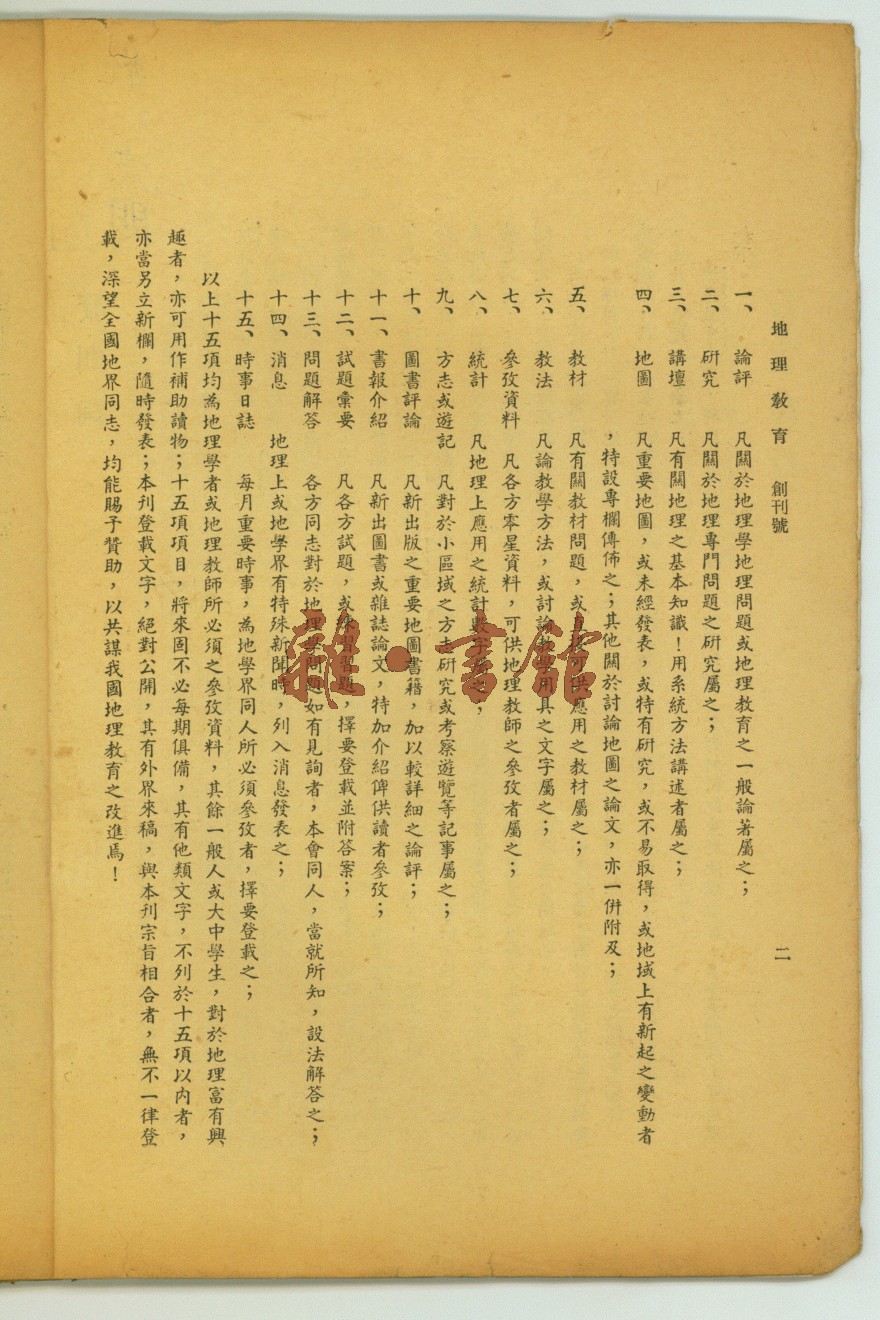 地理教育 創刊號 二
一、 論評 凡關於地理學地理問題或地理教育之一般論著屬之；
二、 研究 凡關於地理專門問題之研究屬之；
三、 講壇 凡有關地理之基本知識！用系統方法講述者屬之；
四、 地圖 凡重要地圖，或未經發表，或特有研究，或不易取得，或地域上有新起之變動者
，特設專欄傳佈之；其他關於討論地圖之論文，亦一併附及；
五、 教材 凡有關教材問題，或直接可供應用之教材屬之；
六、 教法 凡論教學方法，或討論教學用具之文字屬之；
七、 參攷資料 凡各方零星資料，可供地理教師之參攷者屬之；
八、 統計 凡地理上應用之統計數字屬之；
九、 方志或遊記 凡對於小區域之方志研究或考察遊覽等記事屬之；
十、 圖書評論 凡新出版之重要地圖書籍，加以較詳細之論評；
十一、 書報介紹 凡新出圖書或雜誌論文，特加介紹俾供讀者參攷；
十二、 試題彙要 凡各方試題，或練習習題，擇要登載並附答案；
十三、 問題解答 各方同志對於地理學問題如有見詢者，本會同人，當就所知，設法解答之；
十四、 消息 地理上或地學界有特殊新聞時，列入消息發表之；
十五、 時事日誌 每月重要時事，為地學界同人所必須參攷者，擇要登載之；
以上十五項均為地理學者或地理教師所必須之參攷資料，其餘一般人或大中學生，對於地理富有興
趣者，亦可用作補助讀物；十五項項目，將來固不必每期俱備，其有他類文字，不列於十五項以內者，
亦當另立新欄，隨時發表；本刊登載文字，絕對公開，其有外界來稿，與本刊宗旨相合者，無不一律登
載，深望全國地界同志，均能賜予贊助，以共謀我國地理教育之改進焉！
雜·書館